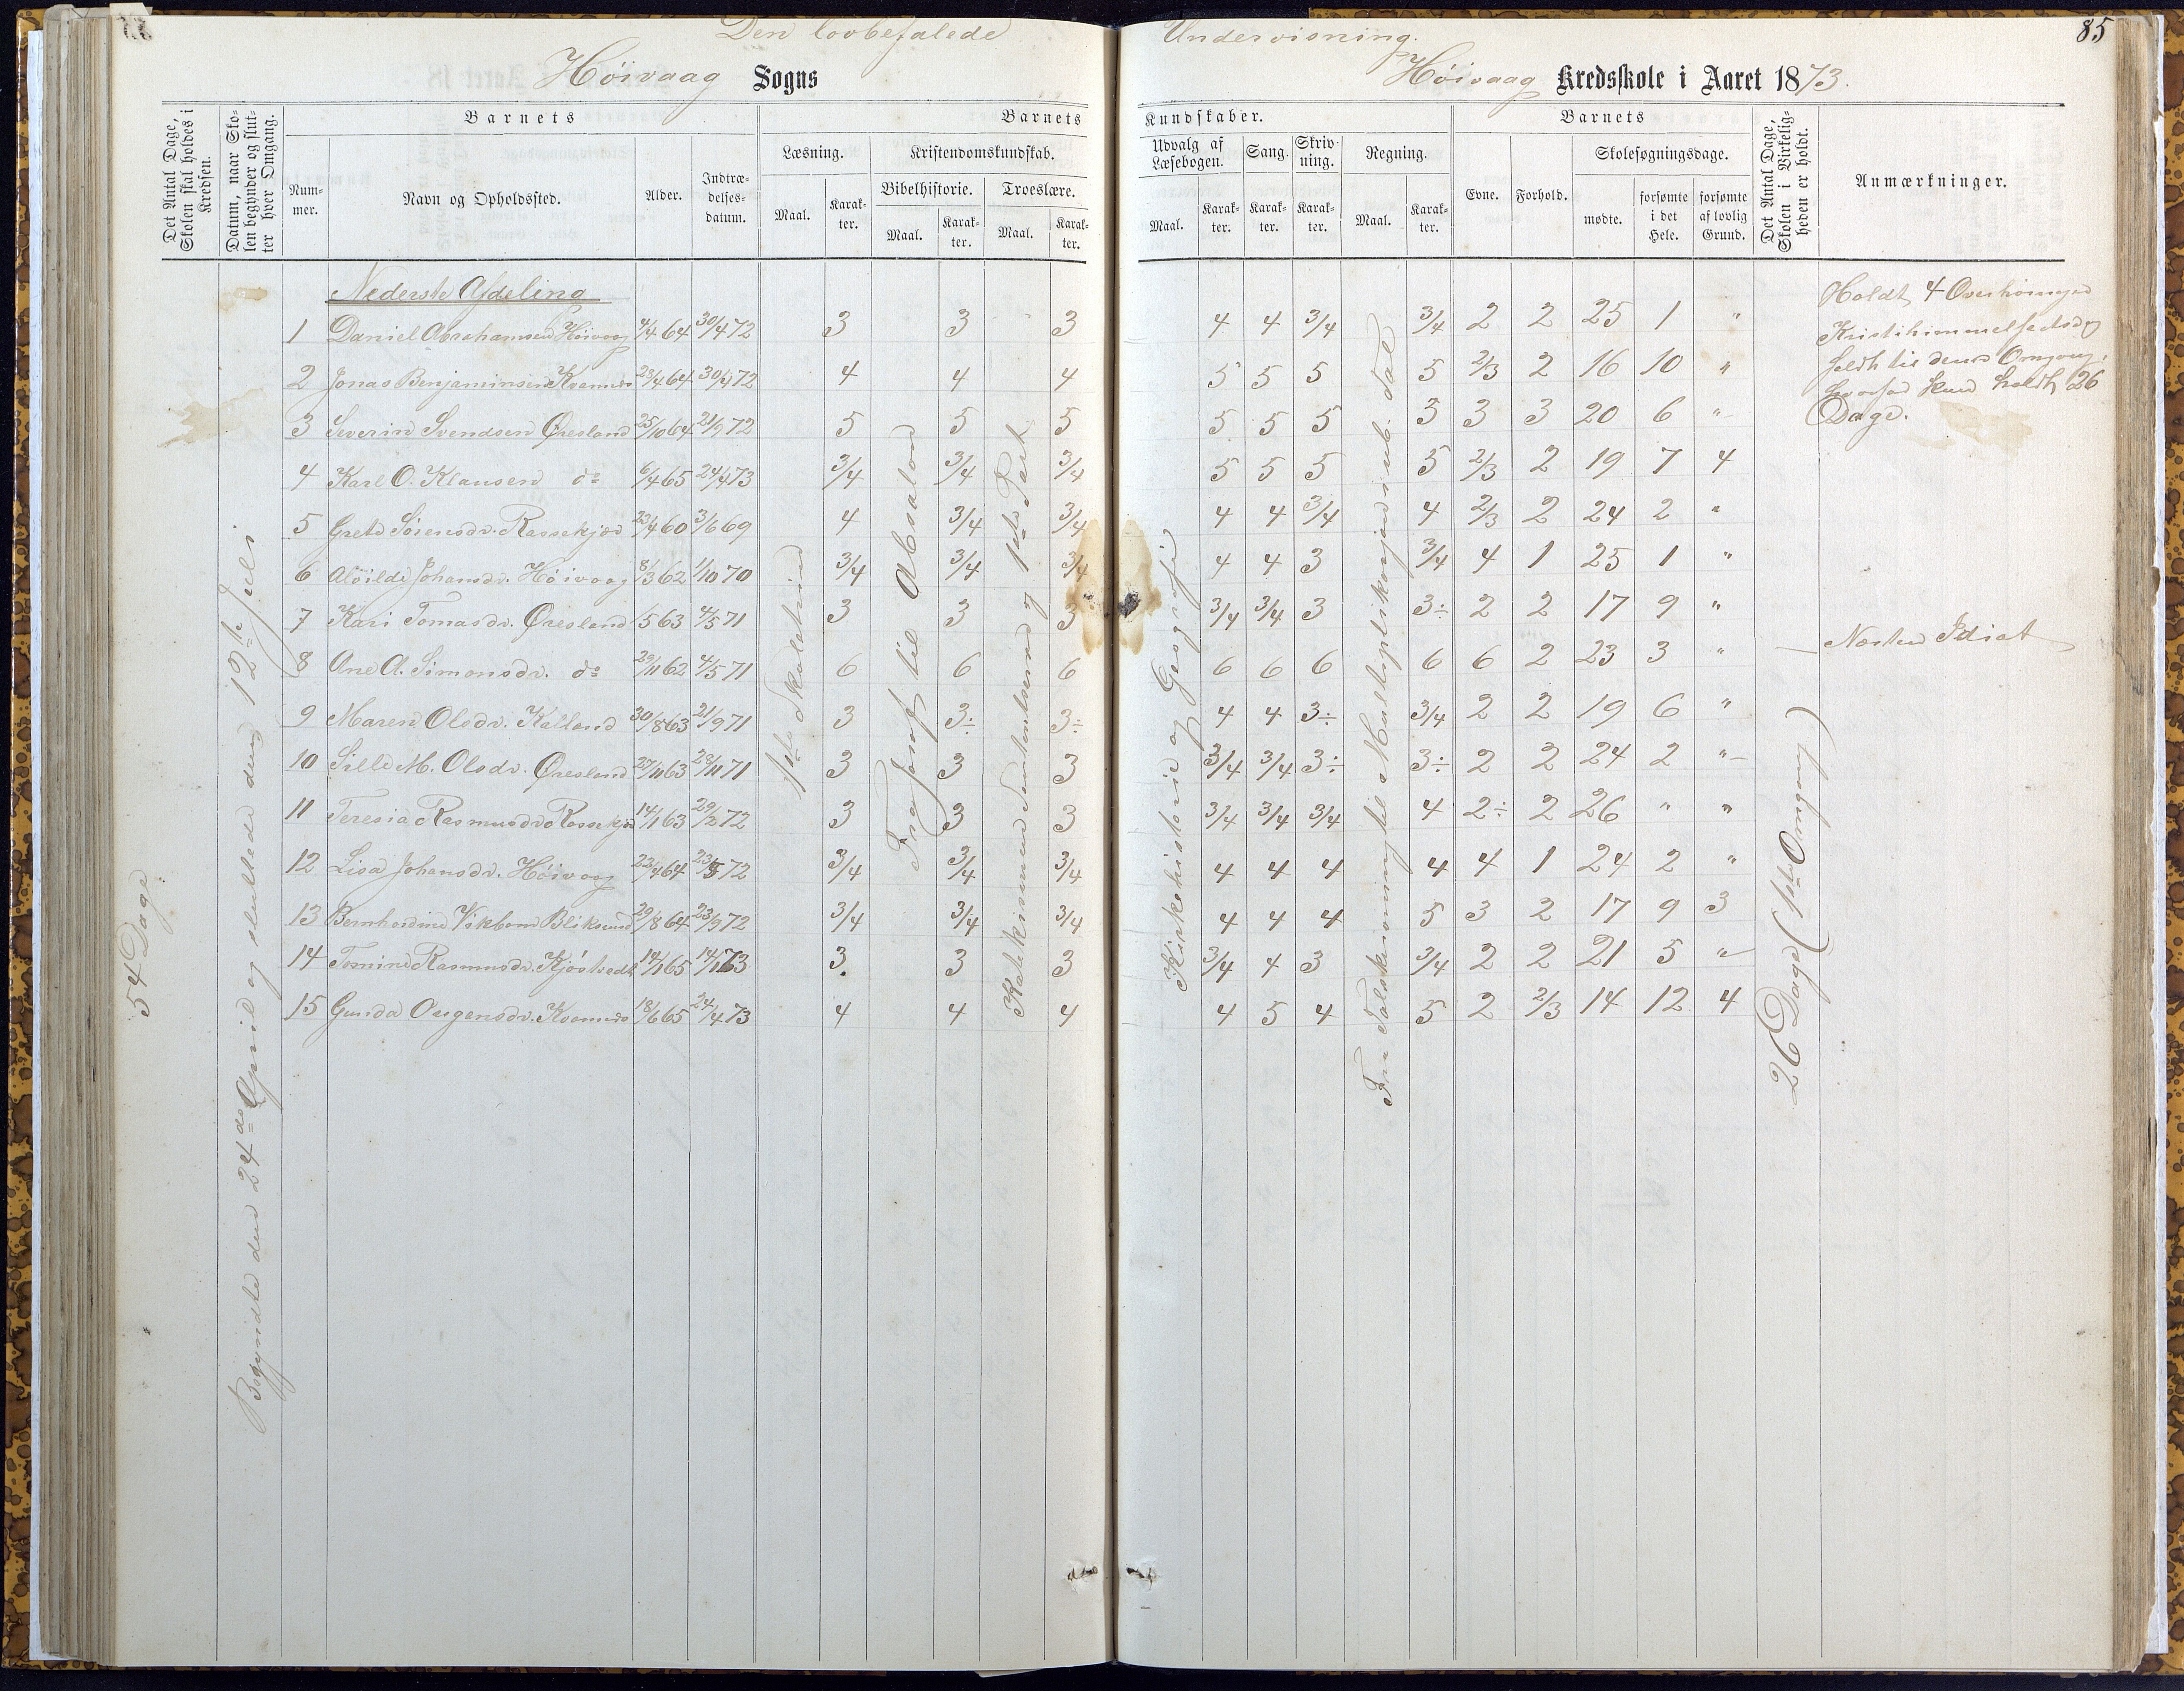 Den lovbefalede Undervisning.
85
Höivaag Sogns Höivaag Kredsskole i Aaret 1873.
Det Antal Dage, Skolen skal holdes i Kredsen.
Datum, naar Skolen begynder og slutter hver Omgang.
Barnets
Nummer.
Navn og Opholdssted.
Alder.
Indtrædelsesdatum.
Barnets Kundskaber.
Læsning.
Maal.
Karakter.
Kristendomskundskab.
Bibelhistorie.
Maal.
Karakter.
Troeslære.
Maal.
Karakter.
Udvalg af Læsebogen.
Maal.
Karakter.
Sang.
Karakter.
Skrivning.
Karakter.
Regning.
Maal.
Karakter.
Barnets
Evne.
Forhold.
Skolesøgningsdage.
mødte.
forsømte i det Hele.
forsømte af lovlig Grund.
Det Antal Dage, Skolen i Virkeligheden er holdt.
Anmærkninger.
54 Dage
Begyndte den 24de April og sluttede den 12te Juli
Nederste Afdeling
1 Daniel Abrahamsen Höivaag 4/4 64 30/4 72 3 3 3 4 4 3/4 3/4 2 2 25 1 "
2 Jonas Benjaminsen 28/4 64 30/4 72 4 4 4 5 5 5 5 2/3 2 16 10 "
3 Severin Svendsen Öresland 25/10 64 21/9 72 5 5 5 5 5 5 5 3 3 20 6 "
4 Karl O. Klausen do 6/4 65 24/4 73 3/4 3/4 3/4 5 5 5 5 2/3 2 19 7 4
5 Grete Sörensdr. 23/4 60 3/6 69 4 3/4 3/4 4 4 3/4 4 2/3 2 24 2 "
6 Alvilde Johansdr. Höivaag 8/3 62 1/10 70 3/4 3/4 3/4 4 4 3 3/4 4 1 25 1 "
7 Kari Tomasdr. Öresland /5 63 4/5 71 3 3 3 3/4 3/4 3 3÷ 2 2 17 9 "
8 Ane A. Simonsdr. do 29/11 62 4/5 71 6 6 6 6 6 6 6 6 2 23 3 " Næsten Idiot
9 Maren Olsdr. Kalland 30/8 63 21/9 71 3 3÷ 3÷ 4 4 3÷ 3/4 2 2 19 6 "
10 Sille M. Olsdr. Öresland 27/11 63 23/11 71 3 3 3 3/4 3/4 3÷ 3÷ 2 2 24 2 "
11 Teresia Rasmusdr. 14/1 63 29/2 72 3 3 3 3/4 3/4 3/4 4 2÷ 2 26 " "
12 Lisa Johansdr. Höivaag 23/4 64 23/5 72 3/4 3/4 3/4 4 4 4 4 4 1 24 2 "
13 Bernhardine Vikbom Bliksund 29/8 64 23/9 72 3/4 3/4 3/4 4 4 4 5 3 2 17 9 3
14 Tomine Rasmusdr. Kjöstvedt 14/1 65 3 3 3 3/4 4 3 3/4 2 2 21 5 "
15 Gunda Augensdr. 18/6 65 24/4 73 4 4 4 4 5 4 5 2 2/3 14 12 4
1ste Skoletrin
Fra Josef til Absalon
1ste Part
Kirkehistorie og Geografi
Fra Talskrivning til Multiplikasjon
26 Dage (1ste Omgang)
Holdt 4
Kristihimmelfartsdag
faldt til denne Omgang,
hvorfor kun holdt 26
Dage.